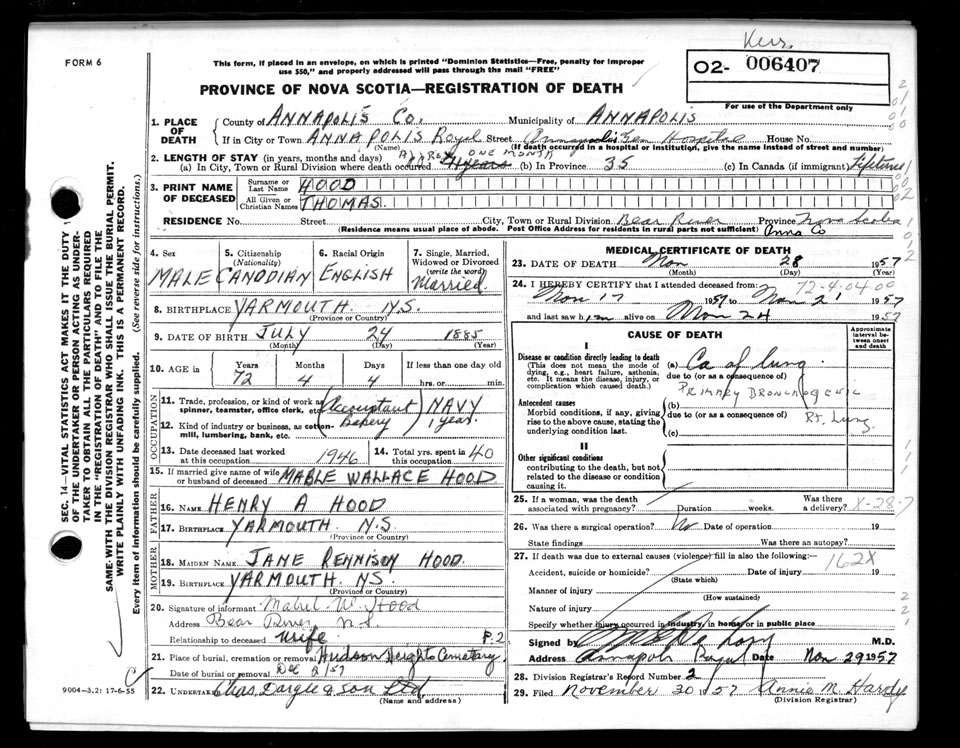 Kers.
FORM 6
This form, if placed in an envelope, on which is printed "Dominion Statistics—Free, penalty for improper
use $50," and properly addressed will pass through the mail "FREE"
O2- 006407
PROVINCE OF NOVA SCOTIA—REGISTRATION OF DEATH
For use of the Department only
1. PLACE OF DEATH
County of ANNAPOLIS Co. Municipality of ANNAPOLIS
If in City or Town ANNAPOLIS Royal Street Annapolis Gen Hospital House No.
(Name) (If death occurred in a hospital or institution, give the name instead of street and number)
2. LENGTH OF STAY (in years, months and days) ONE MONTH
(a) In City, Town or Rural Division where death occurred (b) In Province 35 (c) In Canada (if immigrant) Lifetime
3. PRINT NAME OF DECEASED
Surname or Last Name HOOD
All Given or Christian Names THOMAS
RESIDENCE No. Street City, Town or Rural Division Bear River Province Nova Scotia
(Residence means usual place of abode. Post Office Address for residents in rural parts not sufficient) Anna Co
4. Sex MALE
5. Citizenship (Nationality) CANODIAN
6. Racial Origin ENGLISH
7. Single, Married, Widowed or Divorced (write the word) Married
8. BIRTHPLACE YARMOUTH N.S.
(Province or Country)
9. DATE OF BIRTH JULY 24 1885
(Month) (Day) (Year)
10. AGE in Years Months Days If less than one day old
72 4 4 hrs. or min.
OCCUPATION
11. Trade, profession, or kind of work as spinner, teamster, office clerk, etc. Accountant NAVY
12. Kind of industry or business, as cotton-mill, lumbering, bank, etc. Bakery 1 year.
13. Date deceased last worked at this occupation 1946 14. Total yrs. spent in this occupation 40
15. If married give name of wife or husband of deceased MABLE WALLACE HOOD
FATHER
16. NAME HENRY A HOOD
17. BIRTHPLACE YARMOUTH N.S.
(Province or Country)
MOTHER
18. MAIDEN NAME JANE RENNISON HOOD.
19. BIRTHPLACE YARMOUTH. NS.
(Province or Country)
20. Signature of informant Mabel W. Hood
Address Bear River, N.S.
Relationship to deceased wife P.2
21. Place of burial, cremation or removal Hudson Heights Cemetary
Date of burial or removal Dec 2/57
22. UNDERTAKER Chas. Dargie & Son Ltd
(Name and address)
MEDICAL CERTIFICATE OF DEATH
23. DATE OF DEATH Nov 28 1957
(Month) (Day) (Year)
24. I HEREBY CERTIFY that I attended deceased from: 72-4-04-00
Nov 17 1957 to Nov 21 1957
and last saw him alive on Nov 24 1957
CAUSE OF DEATH
Approximate interval between onset and death
I
Disease or condition directly leading to death
(This does not mean the mode of dying, e.g., heart failure, asthenia, etc. It means the disease, injury, or complication which caused death.)
(a) Ca of lung
due to (or as a consequence of)
PRIMARY BRONCHOGENIC
Antecedent causes
Morbid conditions, if any, giving rise to the above cause, stating the underlying condition last.
(b)
due to (or as a consequence of)
Rt. Lung.
(c)
II
Other significant conditions
contributing to the death, but not related to the disease or condition causing it.
25. If a woman, was the death associated with pregnancy? Duration weeks. Was there a delivery? X-28-7
26. Was there a surgical operation? No Date of operation 19
State findings Was there an autopsy?
27. If death was due to external causes (violence) fill in also the following: 162X
Accident, suicide or homicide? Date of injury 19
(State which)
Manner of injury
(How sustained)
Nature of injury
Specify whether injury occurred in industry, in home, or in public place
Signed by M.D.
Address Annapolis Royal Date Nov 29 1957
28. Division Registrar's Record Number 2
29. Filed November 30 1957 Annie M. Hardy
(Division Registrar)
SEC. 14—VITAL STATISTICS ACT MAKES IT THE DUTY
OF THE UNDERTAKER OR PERSON ACTING AS UNDER-
TAKER TO OBTAIN ALL THE PARTICULARS REQUIRED
IN THE "REGISTRATION OF DEATH" AND TO FILE THE
SAME WITH THE DIVISION REGISTRAR WHO SHALL ISSUE THE BURIAL PERMIT.
WRITE PLAINLY WITH UNFADING INK. THIS IS A PERMANENT RECORD.
Every item of information should be carefully supplied. (See reverse side for instructions.)
9004-3.2: 17-6-55